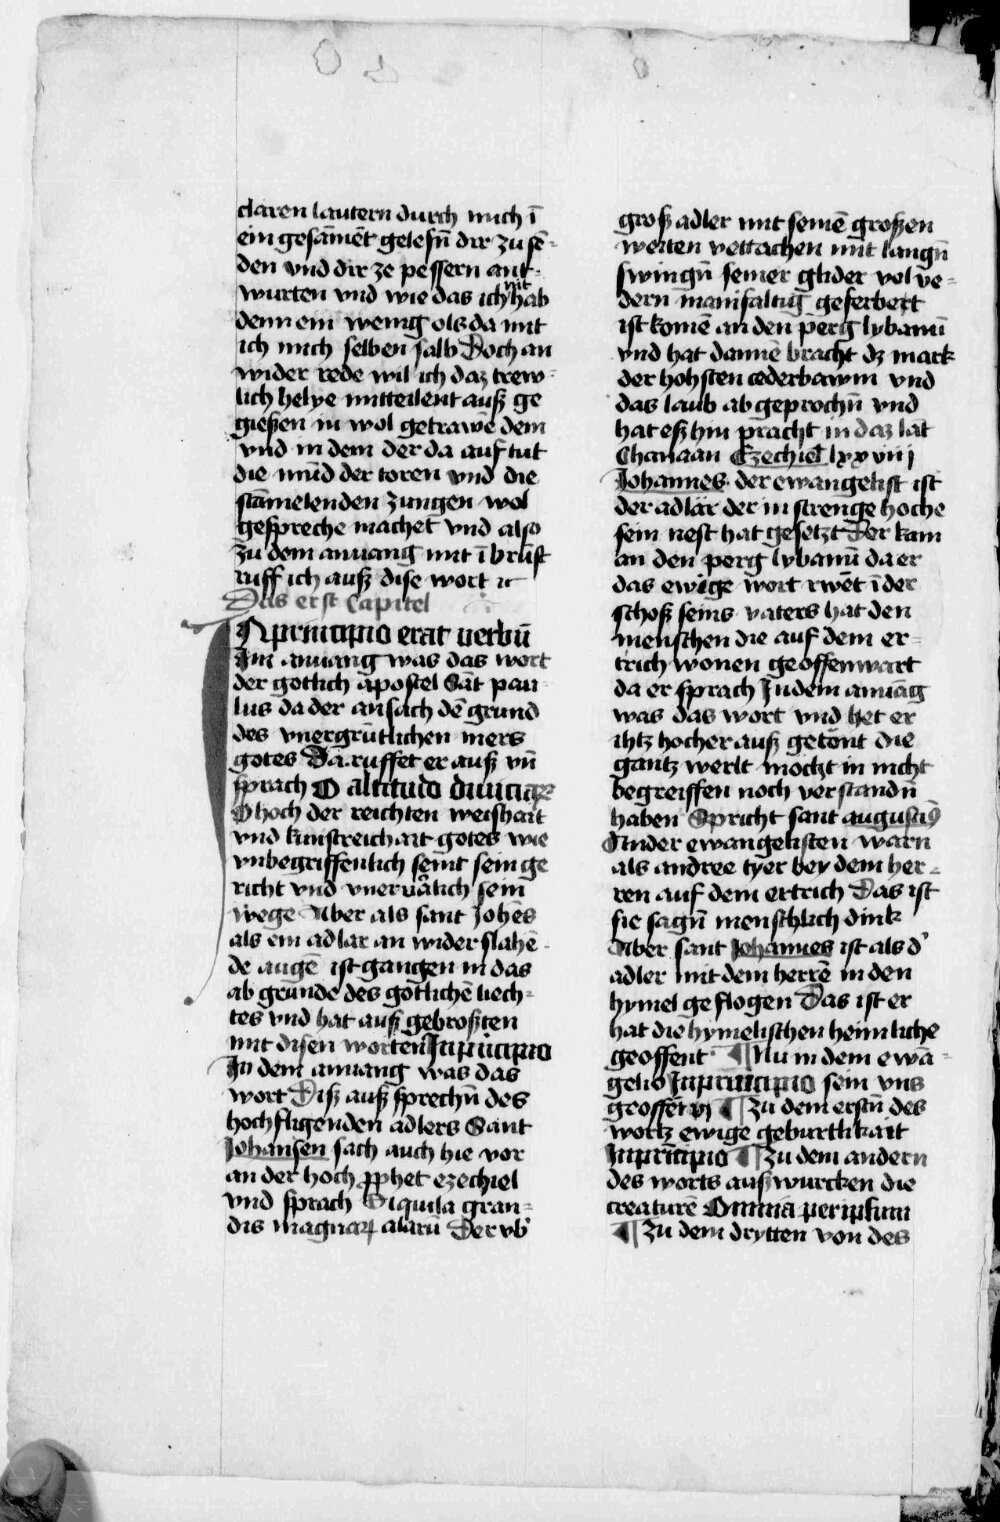 claren lautern durch mich ī
ein gesām̄et gelesn̄ dir zu sē-
den vnd dir ze pessern ant-
wurten vnd wie das ich nit hab
denn ein wenig ols da mit
ich mich selben salb Doch an
wider rede wil ich daz trew-
lich helye mitteilent auß ge
gießen in wol getrawē dem
vnd in dem der da auf tut
die mūd der toren vnd die
stāmelenden zungen wol
gespreche machet vnd also
zu dem anuang mit ī brūst
ruff ich auß dise wort
Das erst Capitel
In principio erat verbū
Im anuang was das wort
der gotlich apostel Sāt pau-
lus da der ansach dē grund
des vnergrūtlichen mers
gotes Da ruffet er auß vn̄
sprach O altitudo diuiciaꝝ
O hoch der reichten weishait
vnd kunstreichait gotes wie
vnbegriffenlich seint sein ge
richt vnd vneruārlich sein
wege Aber als sant Johēs
als ein adlar an wider slahē-
de augē ist gangen in das
ab grunde des gōtlichē liech-
tes vnd hat auß gebroßten
mit disen worten In principio
In dem anuang was das
wort Diß auß sprechn̄ des
hochfligenden adlers Sant
Johansen sach auch hie vor
an der hoch ꝓphet ezechiel
vnd sprach Aquila gran-
dis magnaꝝ alarū Der vb'
groß adler mit seinē großen
weiten vettachen mit langn̄
swingn̄ seiner glider vol ve-
dern manifaltig geferbert
ist komē an den perg lybanū
vnd hat dannē bracht dz mark
der hohsten cederbawm vnd
das laub ab geprochn̄ vnd
hat eß hin pracht in daz lāt
Chanaan Ezechiel lxxviij
Johannes der ewangelist ist
der adlar der in strenge hoche
sein nest hat gesetzt Der kam
an den perg lybanū da er
das ewige wort rwēt ī der
schoß seins vaters hat den
menschen die auf dem er-
trich wonen geoffenwart
da er sprach In dem anuāg
was das wort vnd het er
ihtz hocher auß getönt die
gantz werlt mocht in nicht
begreiffen noch verstandn̄
haben Spricht sant augustiꝯ
Ander ewangelisten warn
als andree tyer bey dem her-
ren auf dem ertrich Das ist
sie sagn̄ menschlich dink
Aber sant Johannes ist als d'
adler mit dem herrē in den
hymel geflogen Das ist er
hat die hymelischen heimliche
geoffent ¶ Nu in dem ewā-
gelio In principio sein vns
geoffēt vj ¶ zu dem erstn̄ des
wortz ewige geburtlikait
In principio ¶ zu dem andern
des worts auß wurcken die
creaturē Omnia per ipsum
¶ zu dem drytten von des